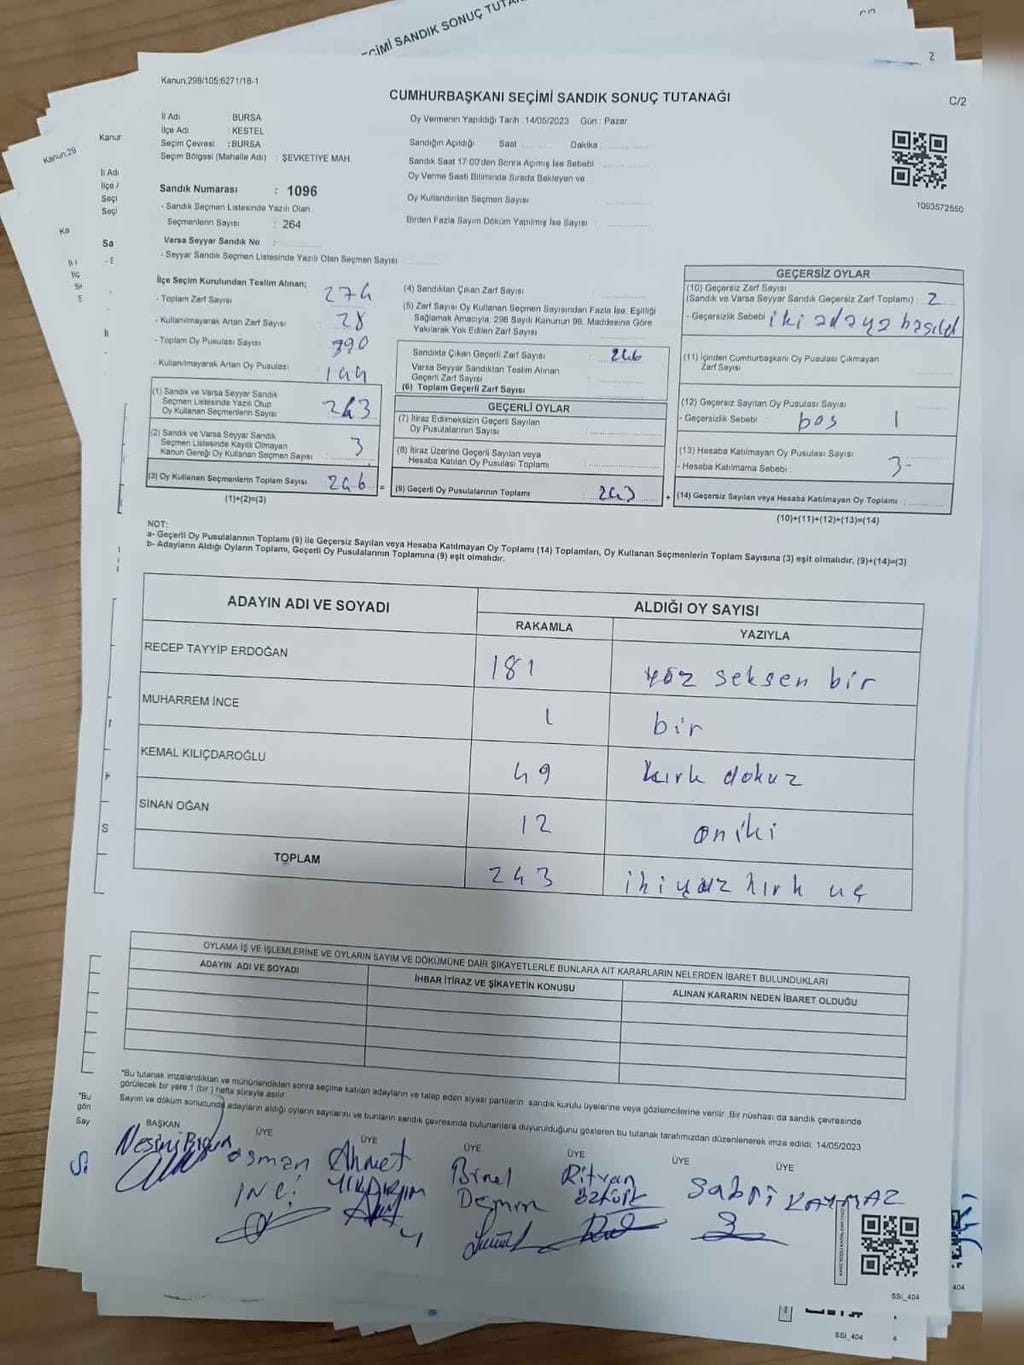 ÇİMİ SANDIK SONUÇ TUTA
Kanun;298/105;6271/18-1
CUMHURBAŞKANI SEÇİMİ SANDIK SONUÇ TUTANAĞI
C/2
İl Adı : BURSA
İlçe Adı : KESTEL
Seçim Çevresi : BURSA
Seçim Bölgesi (Mahalle Adı) : ŞEVKETİYE MAH.
Sandık Numarası : 1096
- Sandık Seçmen Listesinde Yazılı Olan
Seçmenlerin Sayısı : 264
Varsa Seyyar Sandık No :
- Seyyar Sandık Seçmen Listesinde Yazılı Olan Seçmen Sayısı
Oy Vermenin Yapıldığı Tarih : 14/05/2023 Gün : Pazar
Sandığın Açıldığı Saat Dakika
Sandık Saat 17:00'den Sonra Açımış İse Sebebi
Oy Verme Saati Bitiminde Sırada Bekleyen ve
Oy Kullandırılan Seçmen Sayısı
Birden Fazla Sayım Döküm Yapılmış İse Sayısı
1093572550
İlçe Seçim Kurulundan Teslim Alınan;
- Toplam Zarf Sayısı 274
- Kullanılmayarak Artan Zarf Sayısı 28
- Toplam Oy Pusulası Sayısı 390
- Kullanılmayarak Artan Oy Pusulası 144
(1) Sandık ve Varsa Seyyar Sandık
Seçmen Listesinde Yazılı Olup
Oy Kullanan Seçmenlerin Sayısı 243
(2) Sandık ve Varsa Seyyar Sandık
Seçmen Listesinde Kayıtlı Olmayan
Kanun Gereği Oy Kullanan Seçmen Sayısı 3
(3) Oy Kullanan Seçmenlerin Toplam Sayısı 246 =
(1)+(2)=(3)
(4) Sandıktan Çıkan Zarf Sayısı
(5) Zarf Sayısı Oy Kullanan Seçmen Sayısından Fazla İse, Eşitliği
Sağlamak Amacıyla, 298 Sayılı Kanunun 98. Maddesine Göre
Yakılarak Yok Edilen Zarf Sayısı
Sandıkta Çıkan Geçerli Zarf Sayısı 246
Varsa Seyyar Sandıktan Teslim Alınan
Geçerli Zarf Sayısı
(6) Toplam Geçerli Zarf Sayısı
GEÇERLİ OYLAR
(7) İtiraz Edilmeksizin Geçerli Sayılan
Oy Pusulalarının Sayısı
(8) İtiraz Üzerine Geçerli Sayılan veya
Hesaba Katılan Oy Pusulası Toplamı
(9) Geçerli Oy Pusulalarının Toplamı 243 +
GEÇERSİZ OYLAR
(10) Geçersiz Zarf Sayısı
(Sandık ve Varsa Seyyar Sandık Geçersiz Zarf Toplamı) : 2
- Geçersizlik Sebebi : iki adaya basıldı
(11) İçinden Cumhurbaşkanı Oy Pusulası Çıkmayan
Zarf Sayısı
(12) Geçersiz Sayılan Oy Pusulası Sayısı
- Geçersizlik Sebebi : boş 1
(13) Hesaba Katılmayan Oy Pusulası Sayısı
- Hesaba Katılmama Sebebi : 3-
(14) Geçersiz Sayılan veya Hesaba Katılmayan Oy Toplamı
(10)+(11)+(12)+(13)=(14)
NOT:
a- Geçerli Oy Pusulalarının Toplamı (9) ile Geçersiz Sayılan veya Hesaba Katılmayan Oy Toplamı (14) Toplamları, Oy Kullanan Seçmenlerin Toplam Sayısına (3) eşit olmalıdır. (9)+(14)=(3)
b- Adayların Aldığı Oyların Toplamı, Geçerli Oy Pusulalarının Toplamına (9) eşit olmalıdır.
ADAYIN ADI VE SOYADI ALDIĞI OY SAYISI
RAKAMLA YAZIYLA
RECEP TAYYİP ERDOĞAN 181 yüz seksen bir
MUHARREM İNCE 1 bir
KEMAL KILIÇDAROĞLU 49 kırk dokuz
SİNAN OĞAN 12 oniki
TOPLAM 243 ikiyüz kırk üç
OYLAMA İŞ VE İŞLEMLERİNE VE OYLARIN SAYIM VE DÖKÜMÜNE DAİR ŞİKAYETLERLE BUNLARA AİT KARARLARIN NELERDEN İBARET BULUNDUKLARI
ADAYIN ADI VE SOYADI İHBAR İTİRAZ VE ŞİKAYETİN KONUSU ALINAN KARARIN NEDEN İBARET OLDUĞU
*Bu tutanak imzalandıktan ve mühürlendikten sonra seçime katılan adayların ve talep eden siyasi partilerin sandık kurulu üyelerine veya gözlemcilerine verilir. Bir nüshası da sandık çevresinde
görülecek bir yere 1 (bir) hafta süreyle asılır.
Sayım ve döküm sonucunda adayların aldığı oyların sayılarını ve bunların sandık çevresinde bulunanlara duyurulduğunu gösteren bu tutanak tarafımızdan düzenlenerek imza edildi. 14/05/2023
BAŞKAN ÜYE ÜYE ÜYE ÜYE ÜYE ÜYE
Osman Ahmet Birnel Rıdvan Sabri KAYMAZ
İNCİ YILDIRIM Demir Öztürk
SSi_404
SSi_404